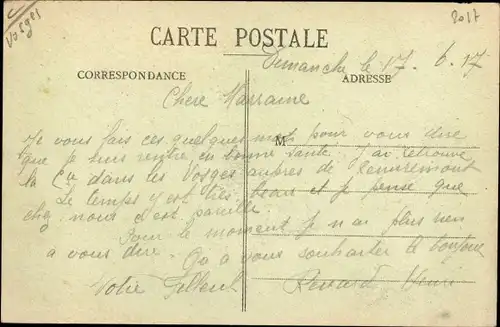 Vosges
2017
CARTE POSTALE
Dimanche le 17. 6. 17
CORRESPONDANCE
ADRESSE
Chere Marraine
M
Je vous fais ces quelques mots pour vous dire
que je suis rentré en bonne santé. J'ai retrouvé
la Cie dans les Vosges auprès de Remiremont
Le temps y est très beau et je pense que
chez nous c'est pareille
Pour le moment je n'ai plus rien
a vous dire. Qu'a vous souhaiter le bonjour
Votre filleul
Renard Henri